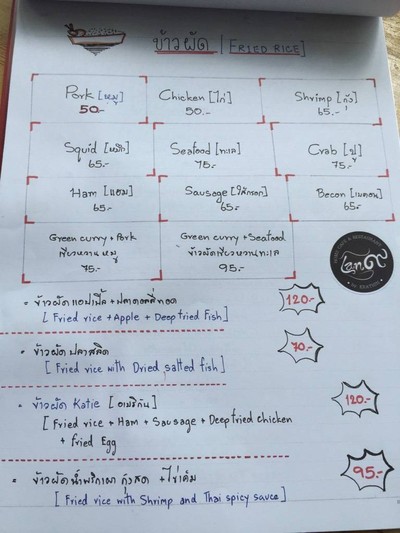 ข้าวผัด | [FRIED RICE]
Pork [หมู] Chicken [ไก่] Shrimp [กุ้ง]
50.- 50.- 65.-
Squid [หมึก] Seafood [ทะเล] Crab [ปู]
65.- 75.- 75.-
Ham [แฮม] Sausage [ไส้กรอก] Becon [เบคอน]
65.- 65.- 65.-
Green curry + Pork Green curry + Seafood
เขียวหวานหมู ข้าวผัดเขียวหวานทะเล
75.- 95.-
ข้าวผัดแอปเปิ้ล + ปลาดอลลี่ทอด 120.-
[ Fried rice + Apple + Deep fried Fish]
ข้าวผัดปลาสลิด 70.-
[ Fried rice with Dried salted fish]
ข้าวผัด Katie [อเมริกัน] 120.-
[ Fried rice + Ham + Sausage + Deep fried chicken
+ fried Egg
ข้าวผัดน้ำพริกเผา กุ้งสด + ไข่เค็ม 95.-
[ Fried rice with Shrimp and Thai spicy sauce]